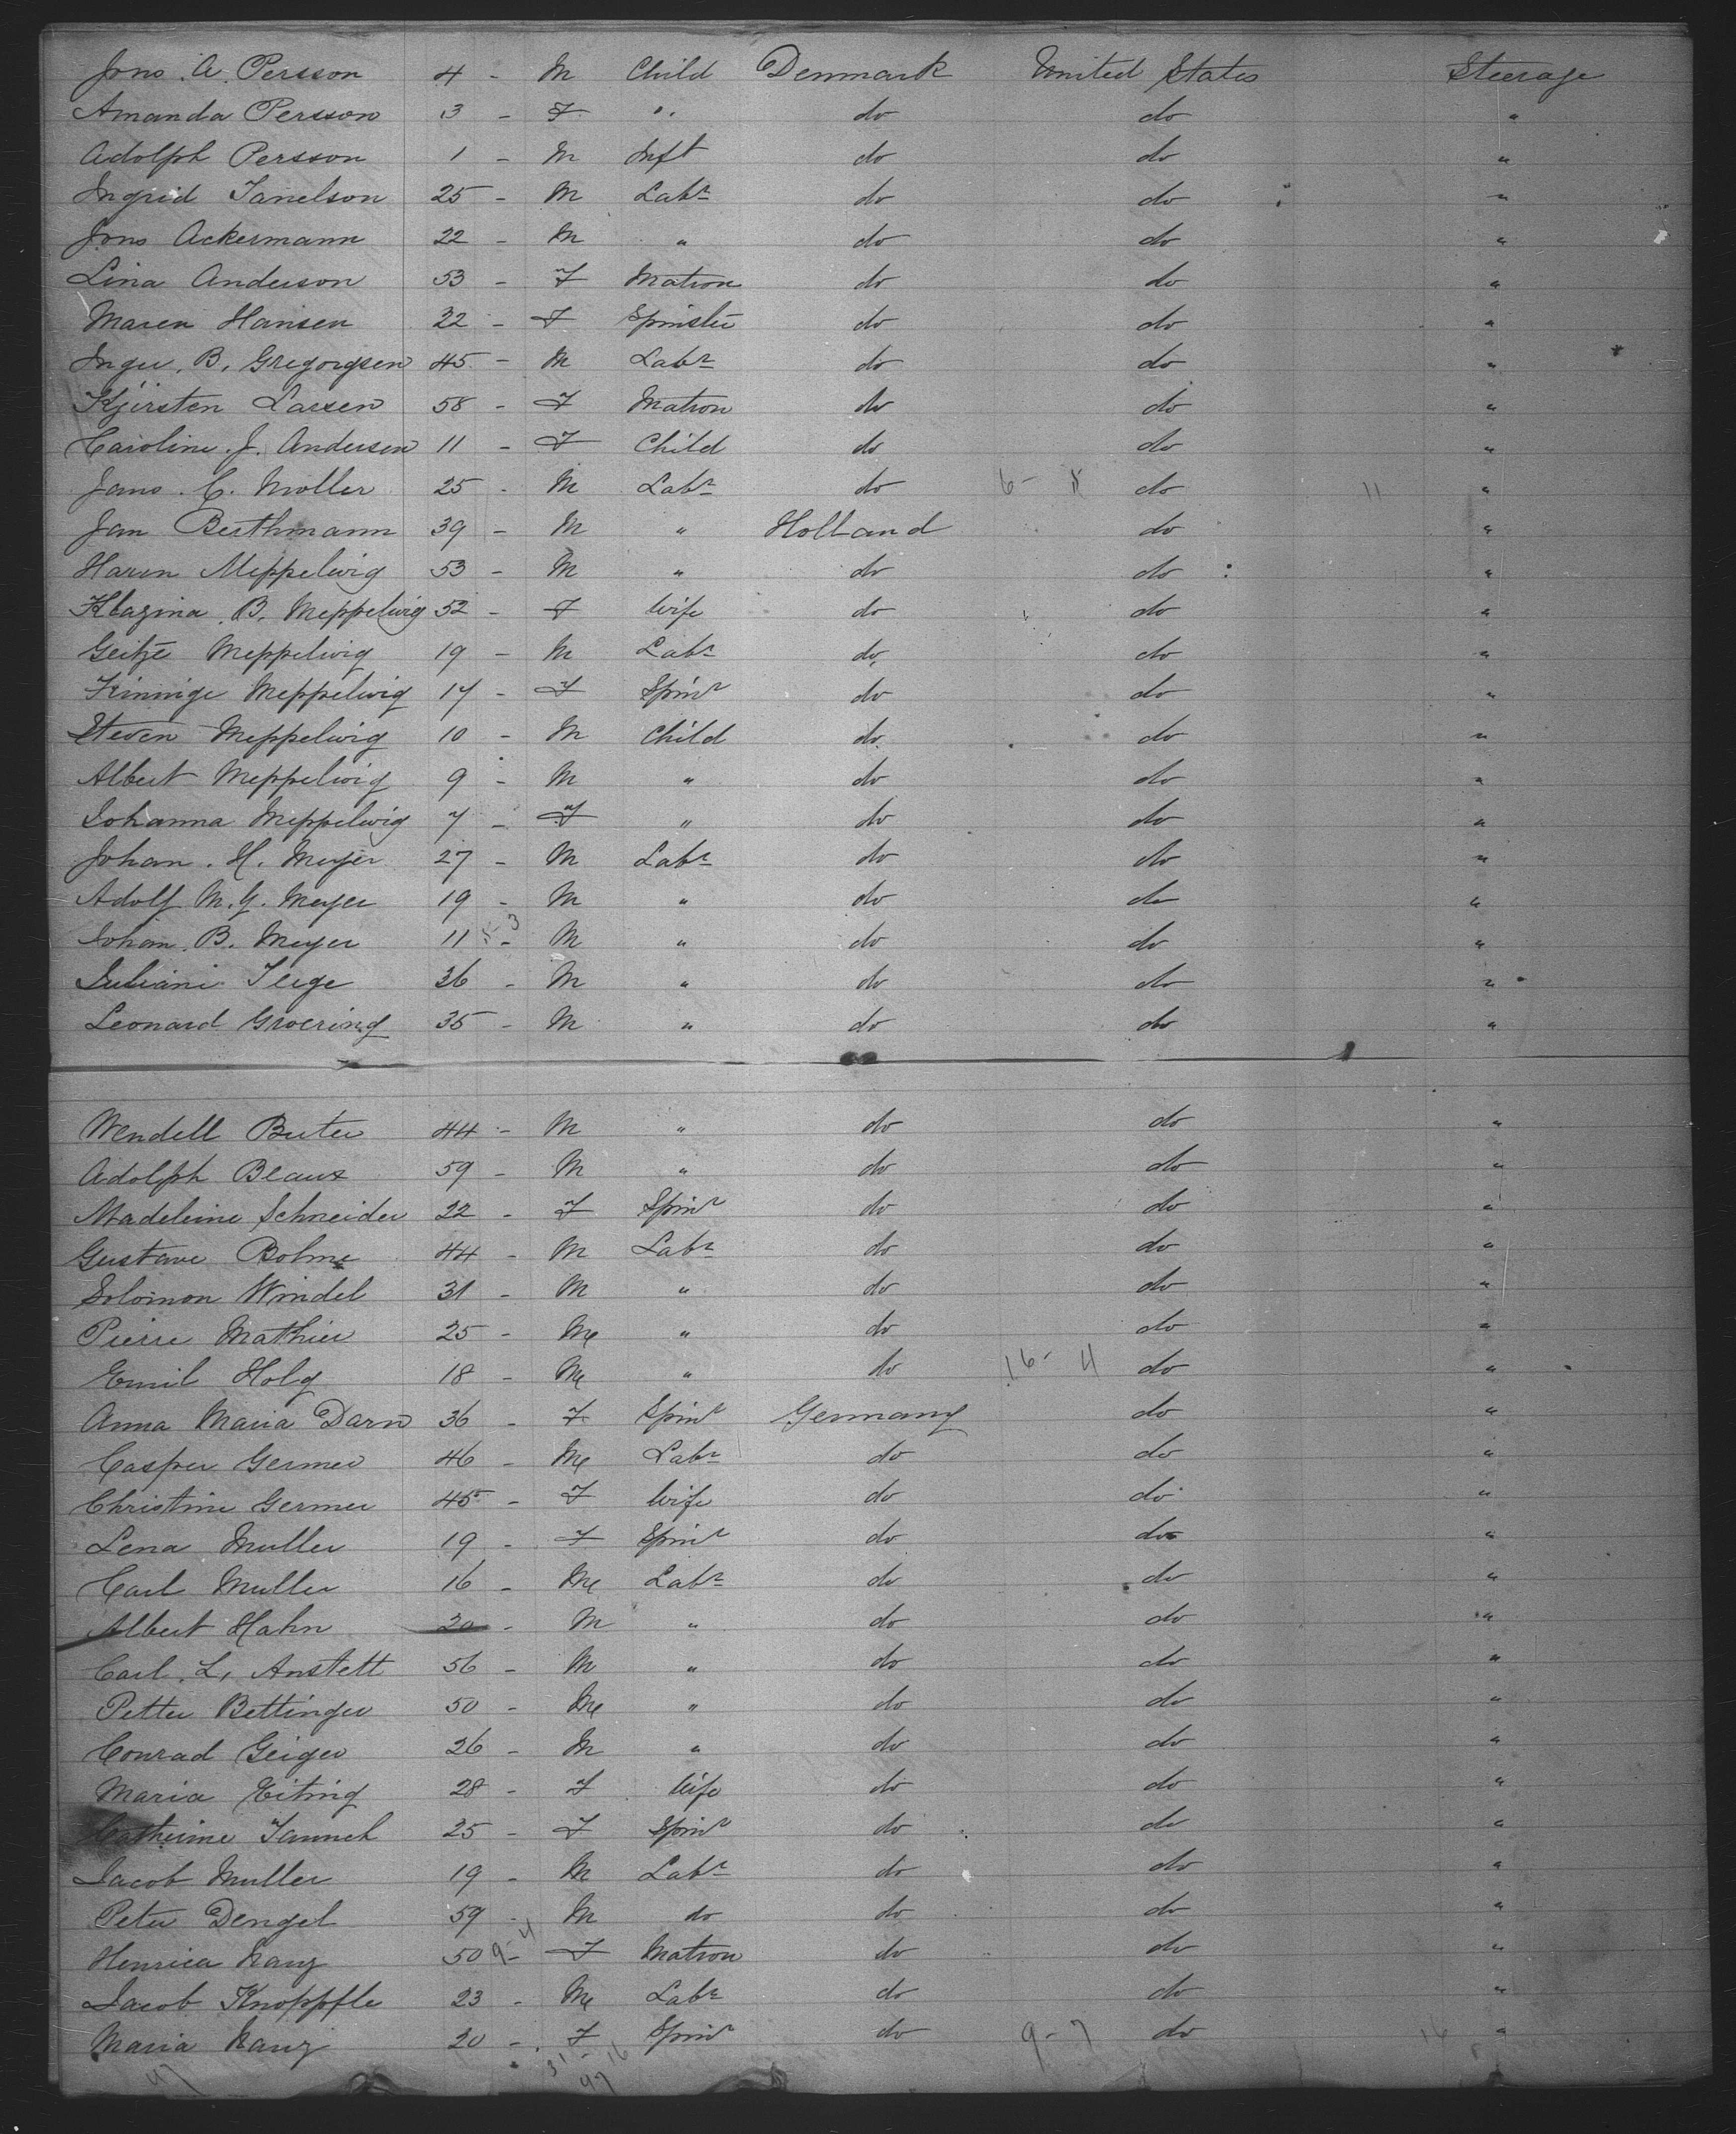 Jons. A. Persson 4 - M Child Denmark United States Steerage
Amanda Persson 3 - F " do do "
Adolph Persson 1 - M Inft do do "
Ingrid Tanelson 25 - M Labr do do "
Jons Ackermann 22 - M " do do "
Lina Anderson 53 - F Matron do do "
Maren Hansen 22 - F Spinster do do "
Inger. B. Gregorgsen 45 - M Labr do do "
Kjersten Larsen 58 - F Matron do do "
Caroline. J. Andersen 11 - F Child do do "
Jans. C. Moller 25 - M Labr do 6 - 5 do 11 "
Jan Berthmann 39 - M " Holland do "
Harm Meppelwig 53 - M " do do "
Klazina. B. Meppelwig 52 - F Wife do do "
Geitze Meppelwig 19 - M Labr do do "
Finnige Meppelwig 14 - F Spinr do do "
Steven Meppelwig 10 - M Child do do "
Albert Meppelwig 9 - M " do do "
Johanna Meppelwig 7 - F " do do "
Johan. H. Meyer 27 - M Labr do do "
Adolf M. G. Meyer 19 - M " do do "
Johan. B. Meyer 11 5-3 - M " do do "
36 - M " do do "
Leonard Groering 35 - M " do do "
Wendell Buter 44 - M " do do "
Adolph Blaux 59 - M " do do "
Madeleine Schneider 22 - F Spinr do do "
Gustave Bohme 44 - M Labr do do "
Solomon Windel 31 - M " do do "
Pierre Mathieu 25 - M " do do "
Emil Holg 18 - M " do 16 - 4 do "
Anna Maria Darn 36 - F Spinr Germany do "
Casper Germer 46 - M Labr do do "
Christine Germer 45 - F Wife do do "
Lena Muller 19 - F Spinr do do "
Carl Muller 16 - M Labr do do "
Albert Hahn 20 - M " do do "
Carl. L. Anstett 56 - M " do do "
Petter Bettinger 50 - M " do do "
Conrad Geiger 26 - M " do do "
Maria Eiting 28 - F Wife do do "
Catherine Jannch 25 - F Spinr do do "
Jacob Muller 19 - M Labr do do "
Peter Dengel 59 - M do do do "
Henrica Kanz 50 9-4 - F Matron do do "
Jacob Knoppfle 23 - M Labr do do "
Maria Kanz 20 - F Spinr do 9 - 7 do 16 "
47 31-16
47